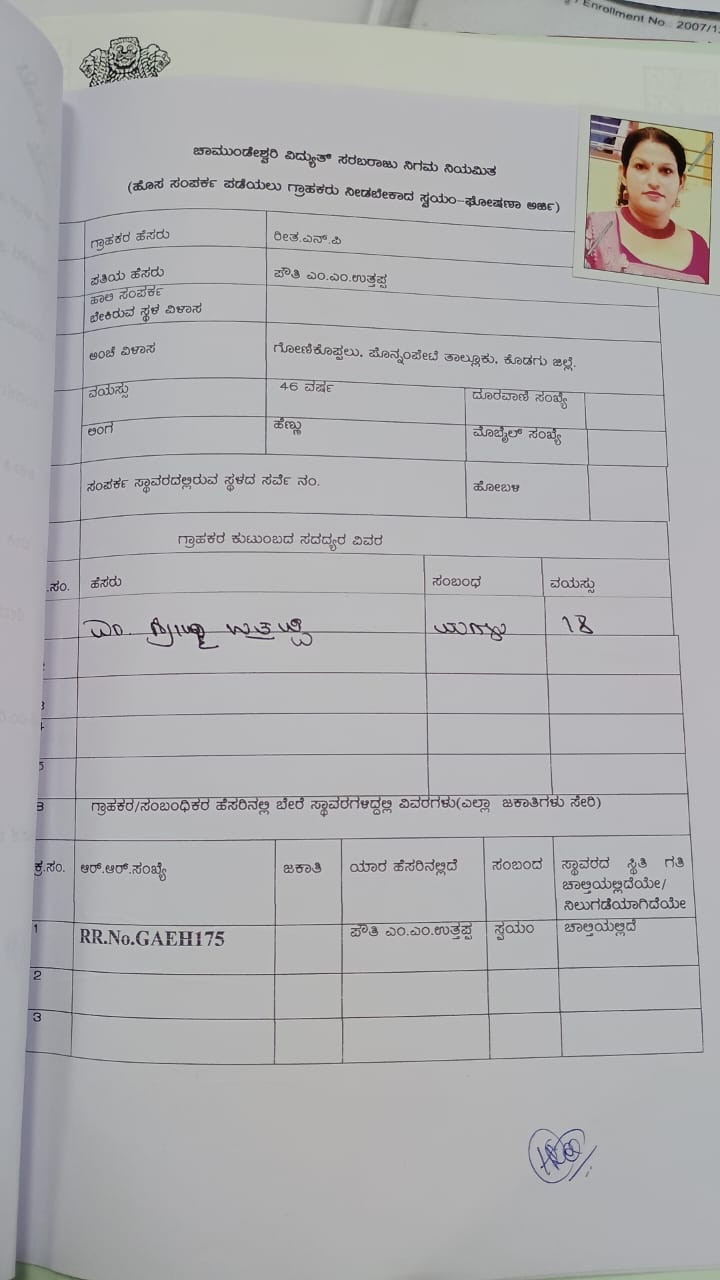 Enrollment No. 2007/1
ಚಾಮುಂಡೇಶ್ವರಿ ವಿದ್ಯುತ್ ಸರಬರಾಜು ನಿಗಮ ನಿಯಮಿತ
(ಹೊಸ ಸಂಪರ್ಕ ಪಡೆಯಲು ಗ್ರಾಹಕರು ನೀಡಬೇಕಾದ ಸ್ವಯಂ-ಘೋಷಣಾ ಅರ್ಜಿ)
ಗ್ರಾಹಕರ ಹೆಸರು ರೀತ.ಎನ್.ಪಿ
ಪತಿಯ ಹೆಸರು ಪೌತಿ ಎಂ.ಎಂ.ಉತ್ತಪ್ಪ
ಹಾಲಿ ಸಂಪರ್ಕ
ಬೇಕಿರುವ ಸ್ಥಳ ವಿಳಾಸ
ಅಂಚೆ ವಿಳಾಸ ಗೋಣಿಕೊಪ್ಪಲು, ಪೊನ್ನಂಪೇಟೆ ತಾಲ್ಲೂಕು, ಕೊಡಗು ಜಿಲ್ಲೆ.
ವಯಸ್ಸು 46 ವರ್ಷ ದೂರವಾಣಿ ಸಂಖ್ಯೆ
ಲಿಂಗ ಹೆಣ್ಣು ಮೊಬೈಲ್ ಸಂಖ್ಯೆ
ಸಂಪರ್ಕ ಸ್ಥಾವರದಲ್ಲಿರುವ ಸ್ಥಳದ ಸರ್ವೆ ನಂ. ಹೋಬಳಿ
ಗ್ರಾಹಕರ ಕುಟುಂಬದ ಸದದ್ಯರ ವಿವರ
.ಸಂ. ಹೆಸರು ಸಂಬಂಧ ವಯಸ್ಸು
ಎಂ. ಉತ್ತಪ್ಪ ಮಗಳು 18
3
4
5
3 ಗ್ರಾಹಕರ/ಸಂಬಂಧಿಕರ ಹೆಸರಿನಲ್ಲಿ ಬೇರೆ ಸ್ಥಾವರಗಳಿದ್ದಲ್ಲಿ ವಿವರಗಳು(ಎಲ್ಲಾ ಜಕಾತಿಗಳು ಸೇರಿ)
ಕ್ರ.ಸಂ. ಆರ್.ಆರ್.ಸಂಖ್ಯೆ ಜಕಾತಿ ಯಾರ ಹೆಸರಿನಲ್ಲಿದೆ ಸಂಬಂದ ಸ್ಥಾವರದ ಸ್ಥಿತಿ ಗತಿ
ಚಾಲ್ತಿಯಲ್ಲಿದೆಯೇ/
ನಿಲುಗಡೆಯಾಗಿದೆಯೇ
1 RR.No.GAEH175 ಪೌತಿ ಎಂ.ಎಂ.ಉತ್ತಪ್ಪ ಸ್ವಯಂ ಚಾಲ್ತಿಯಲ್ಲಿದೆ
2
3